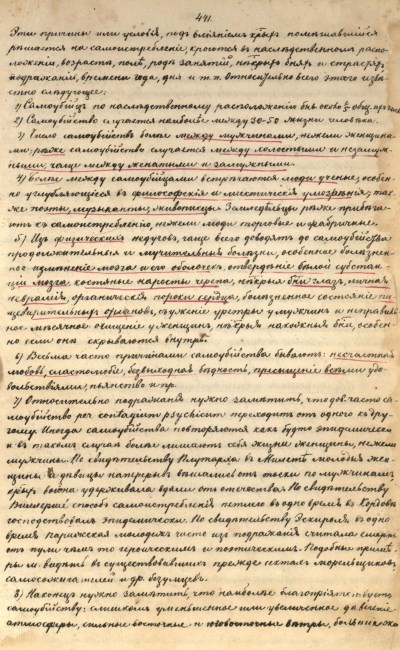 441.
Эти причины или условія, подъ вліяніемъ кᵒᵗᵒʳыхъ помѣшавшійся
рѣшается на самоистребленіе, кроются въ наслѣдственномъ распо-
ложеніи, возрастѣ, полѣ, родѣ занятій, нѣкᵒᵗᵒʳыхъ болѣзн. и страстяхъ,
подражаніи, времени года, дня и т. п. Относительно всего этого извѣ-
стно слѣдующее:
1) Самоубійцъ по наслѣдственному расположенію бываетъ около общ. числа
2) Самоубійство случается наиболѣе между 30-50 жизни человѣка.
3) Число самоубійствъ больше между мужчинами, нежели женщина-
ми: рѣже самоубійство случается между холостыми и незамуж-
ними; чаще между женатыми и замужними.
4) Болѣе между самоубійцами встрѣчаются люди ученые, особен-
но углубляющіеся въ философскія и мистическія умозрѣнія; так-
же поэты, музыканты, живописцы. Земледѣльцы рѣже прибѣга-
ютъ къ самоистребленію, нежели люди торговые и фабричные.
5) Изъ физическихъ недуговъ, чаще всего доводятъ до самоубійства
продолжительныя и мучительныя болѣзни, особенное болѣзнен-
ное измѣненіе мозга и его оболочекъ, отвердѣніе бѣлой субстан-
ціи мозга, костяные наросты черепа, нѣкᵒᵗᵒʳыя бки глазъ, личная
невралгія, органическія пороки сердца, болѣзненное состояніе пи-
щеварительныхъ органовъ, съуженіе уретры у мужчинъ и неправиль-
ное мѣсячное очищеніе у женщинъ, нѣкᵒᵗᵒʳыя накожныя бки, особен-
но если они скрываются внутрь.
6) Весьма часто причинами самоубійства бываютъ: несчастная
любовь, сластолюбіе, безвыходная бѣдность, пресыщеніе всѣми удо-
вольствіями, пьянство и пр.
7) Относительно подражанія нужно замѣтить, что довᵒˡьᵒ часто са-
моубійство per contagium psychicum переходитъ отъ одного къ дру-
гому. Иногда самоубійства повторяются какъ будто эпидемически
и въ такомъ случаѣ болѣе лишаютъ себя жизни женщины, нежели
мужчины. По свидѣтельству Плутарха въ Милетѣ молодыя жен-
щины и дѣвицы наперерывъ вѣшались отъ тоски по мужчинамъ
кᵒᵗᵒʳыхъ война удерживала вдали отъ отечества. По свидѣтельству
способъ самоистребленія петлею въ одно время въ
господствовалъ эпидемически. По свидѣтельству Эскироля, въ одно
время парижская молодежь часто изъ подражанія считала смерть
отъ пули чѣмъ то героическимъ и поэтическимъ. Подобные примѣ-
ры м. видѣть въ существовавшихъ прежде сектахъ морельщиковъ
самосожигателей и др. безумцевъ.
8) Наконецъ нужно замѣтить, что наиболѣе благопріятствуютъ
самоубійству: слишкомъ уменьшенное или увеличенное давленіе
атмосферы, сильные восточные и юговосточные вѣтры,